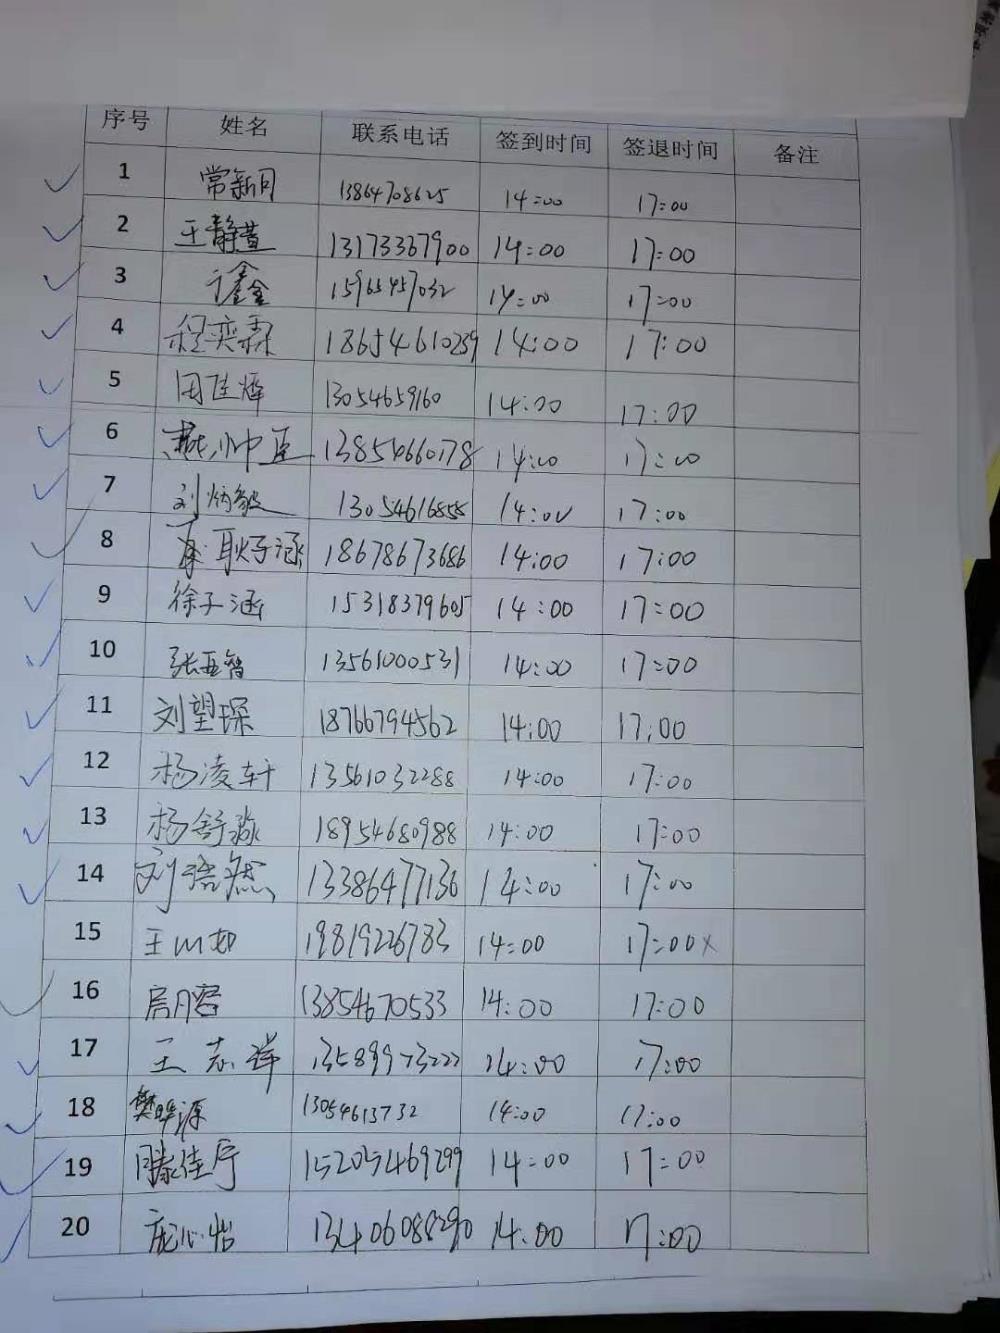 序号 姓名 联系电话 签到时间 签退时间 备注
1 常新月 13864708625 14:00 17:00
2 王静萱 13173367900 14:00 17:00
3 鑫 15965457032 14:00 17:00
4 程奕霖 18654610239 14:00 17:00
5 田佳烨 13054659160 14:00 17:00
6 燕帅臣 13854660178 14:00 17:00
7 刘炳毅 13054616858 14:00 17:00
8 耿子涵 18678673686 14:00 17:00
9 徐子涵 15318379605 14:00 17:00
10 张亚智 13561000531 14:00 17:00
11 刘望琛 18766794562 14:00 17:00
12 杨凌轩 13561032288 14:00 17:00
13 杨舒淼 18954680988 14:00 17:00
14 刘语然 13386477136 14:00 17:00
15 王 19819226783 14:00 17:00x
16 13854670533 14:00 17:00
17 王志祥 13589973222 14:00 17:00
18 樊晔源 13054613732 14:00 17:00
19 滕佳宁 15205469299 14:00 17:00
20 庞心怡 13406088290 14:00 17:00